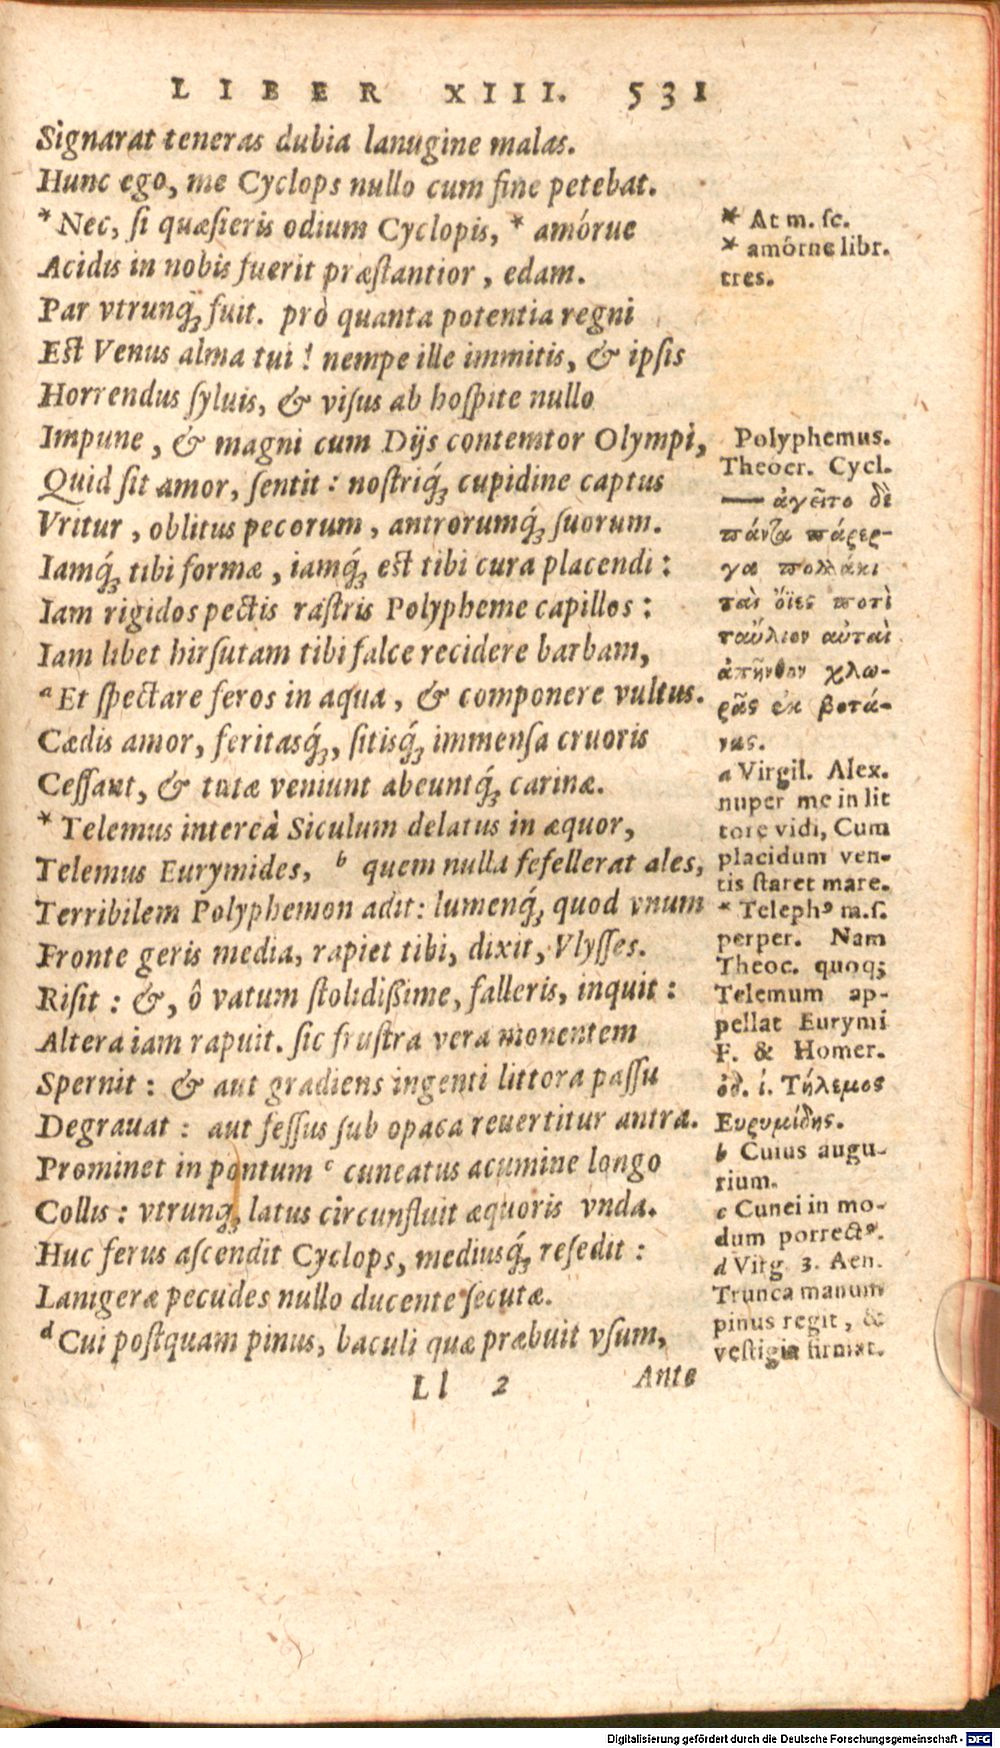 LIBER XIII. 531
Signarat teneras dubia lanugine malas.
Hunc ego, me Cyclops nullo cum fine petebat.
* Nec, ſi quæſieris odium Cyclopis, * amórue
Acidis in nobis fuerit præſtantior, edam.
Par vtrunq́; fuit. prò quanta potentia regni
Est Venus alma tui! nempe ille immitis, & ipſis
Horrendus ſyluis, & viſus ab hoſpite nullo
Impune, & magni cum Dijs contemtor Olympi,
Quid ſit amor, ſentit: noſtriq́; cupidine captus
Vritur, oblitus pecorum, antrorumq́; ſuorum.
Iamq́; tibi formæ, iamq́; est tibi cura placendi:
Iam rigidos pectis raſtris Polypheme capillos:
Iam libet hirſutam tibi falce recidere barbam,
a Et ſpectare feros in aqua, & componere vultus.
Cædis amor, feritasq́;, ſitisq́; immenſa cruoris
Ceſſant, & tutæ veniunt abeuntq́; carinæ.
* Telemus intereà Siculum delatus in æquor,
Telemus Eurymides, b quem nulla fefellerat ales,
Terribilem Polyphemon adit: lumenq́; quod vnum
Fronte geris media, rapiet tibi, dixit, Vlyſſes.
Riſit: &, ô vatum ſtolidißime, falleris, inquit:
Altera iam rapuit. ſic fruſtra vera monentem
Spernit: & aut gradiens ingenti littora paſſu
Degrauat: aut feſſus ſub opaca reuertitur antra.
Prominet in pontum c cuneatus acumine longo
Collis: vtrunq; latus circunfluit æquoris vnda.
Huc ferus aſcendit Cyclops, mediusq́; reſedit:
Lanigeræ pecudes nullo ducente ſecutæ.
d Cui poſtquam pinus, baculi quæ præbuit vſum,
Ll 2 Ante
* At m. ſc.
* amórne libr.
tres.
Polyphemus.
Theocr. Cycl.
— ἁγεῖτο δὲ
πάντα πάρερ-
γα πολλάκι
ταὶ ὄϊες ποτὶ
ταὔλιον αὐταὶ
ἀπῆνθον χλω-
ρᾶς ἐκ βοτά-
νας.
a Virgil. Alex.
nuper me in lit
tore vidi, Cum
placidum ven-
tis ſtaret mare.
* Telephꝰ m.ſ.
perper. Nam
Theoc. quoq;
Telemum ap-
pellat Eurymi
F. & Homer.
ὀδ. ί. Τήλεμος
Ευρυμίδης.
b Cuius augu-
rium.
c Cunei in mo-
dum porrectꝰ.
d Virg. 3. Aen.
Trunca manum
pinus regit, &
veſtigia firmat.
Digitalisierung gefördert durch die Deutsche Forschungsgemeinschaft - DFG